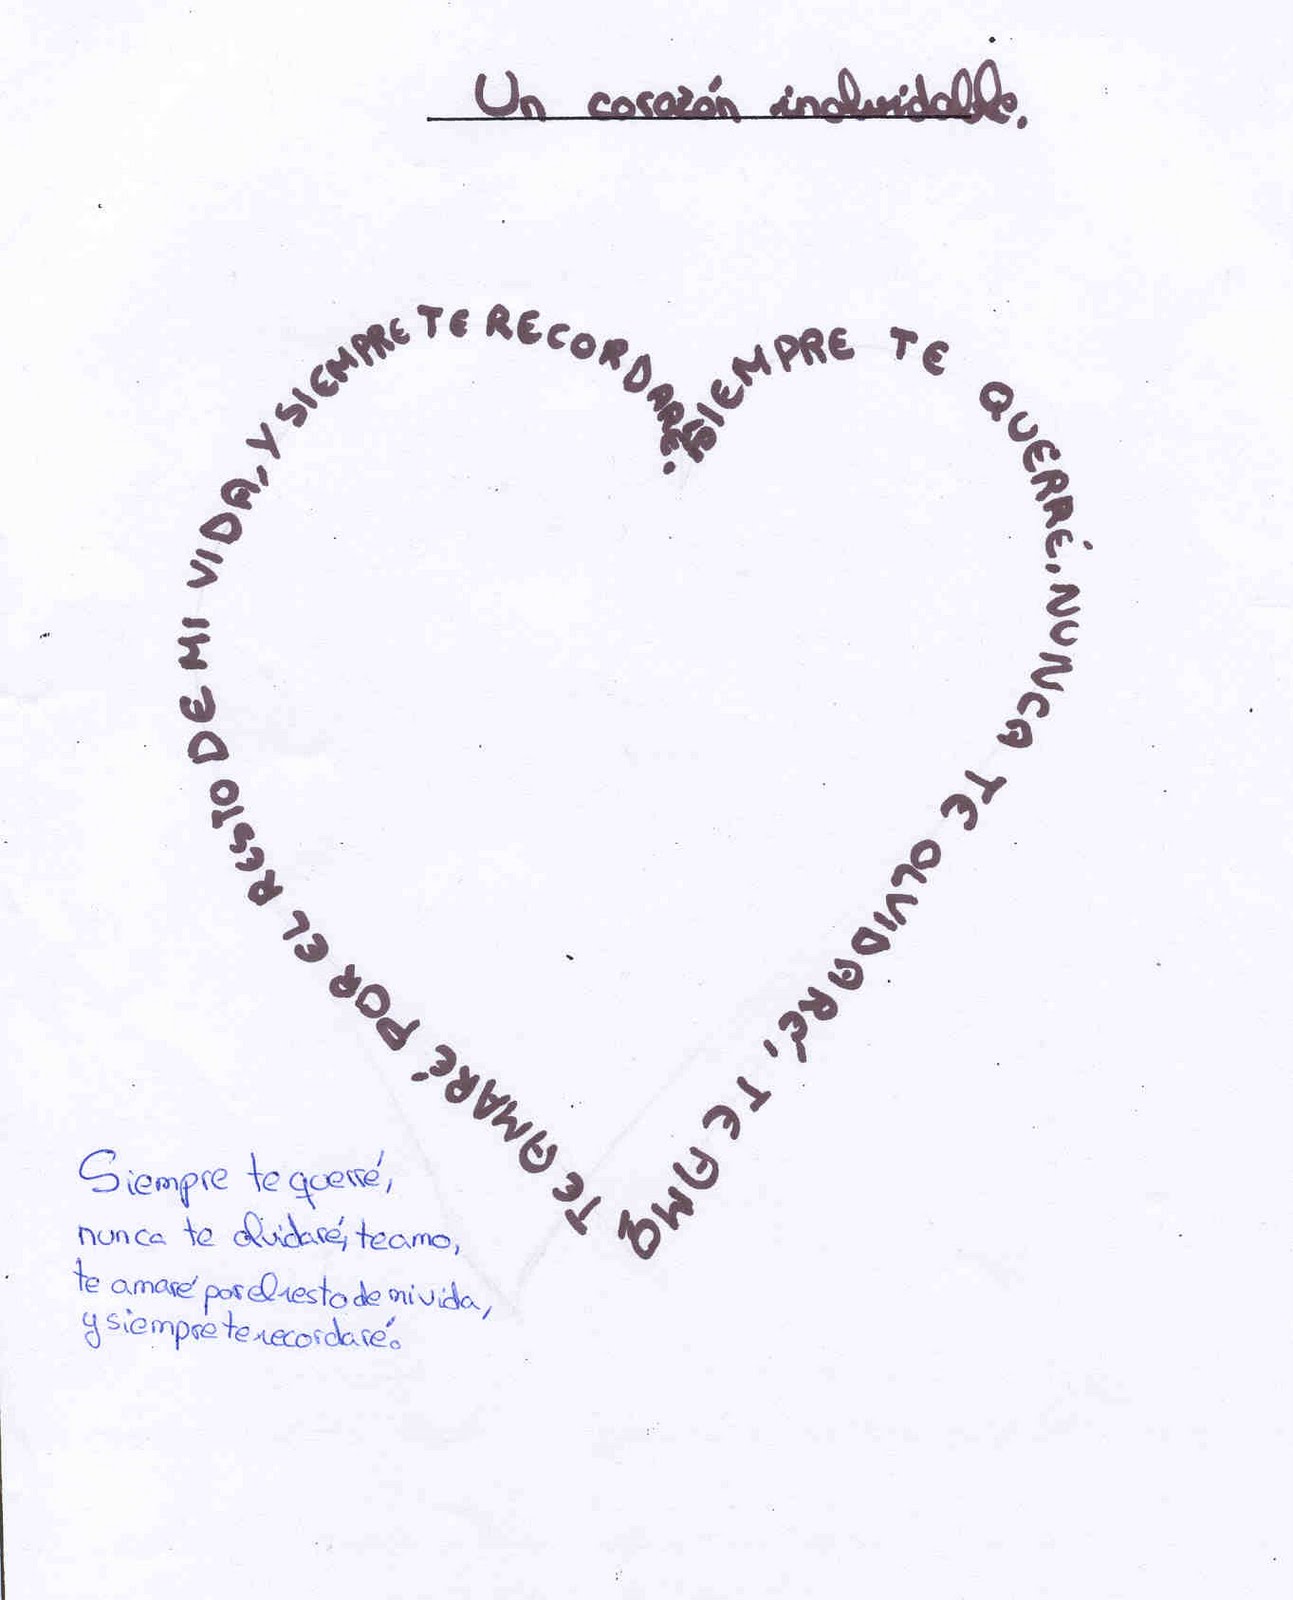 Un corazón inolvidable.
SIEMPRE TE QUERRÉ, NUNCA TE OLVIDARÉ, TE AMO, TE AMARÉ POR EL RESTO DE MI VIDA, Y SIEMPRE TE RECORDARÉ.
Siempre te querré,
nunca te olvidaré, te amo,
te amaré por el resto de mi vida,
y siempre te recordaré.